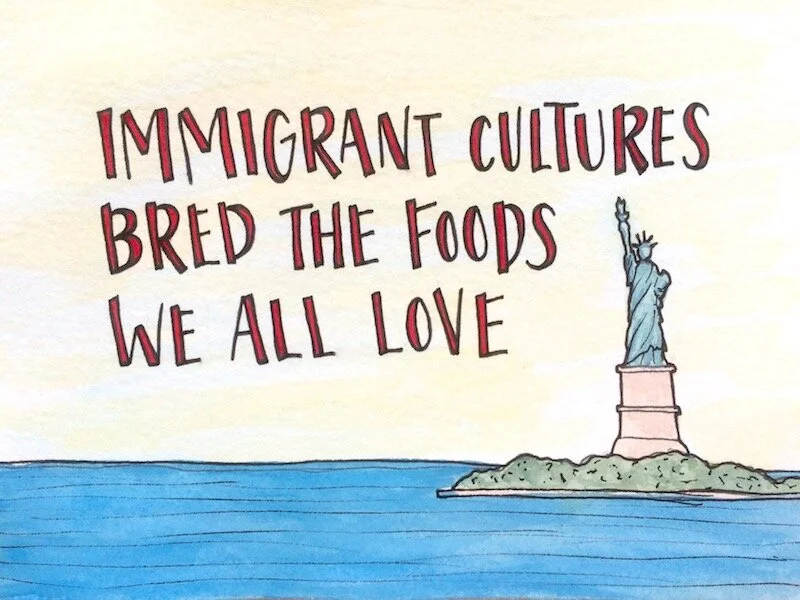 IMMIGRANT CULTURES
BRED THE FOODS
WE ALL LOVE